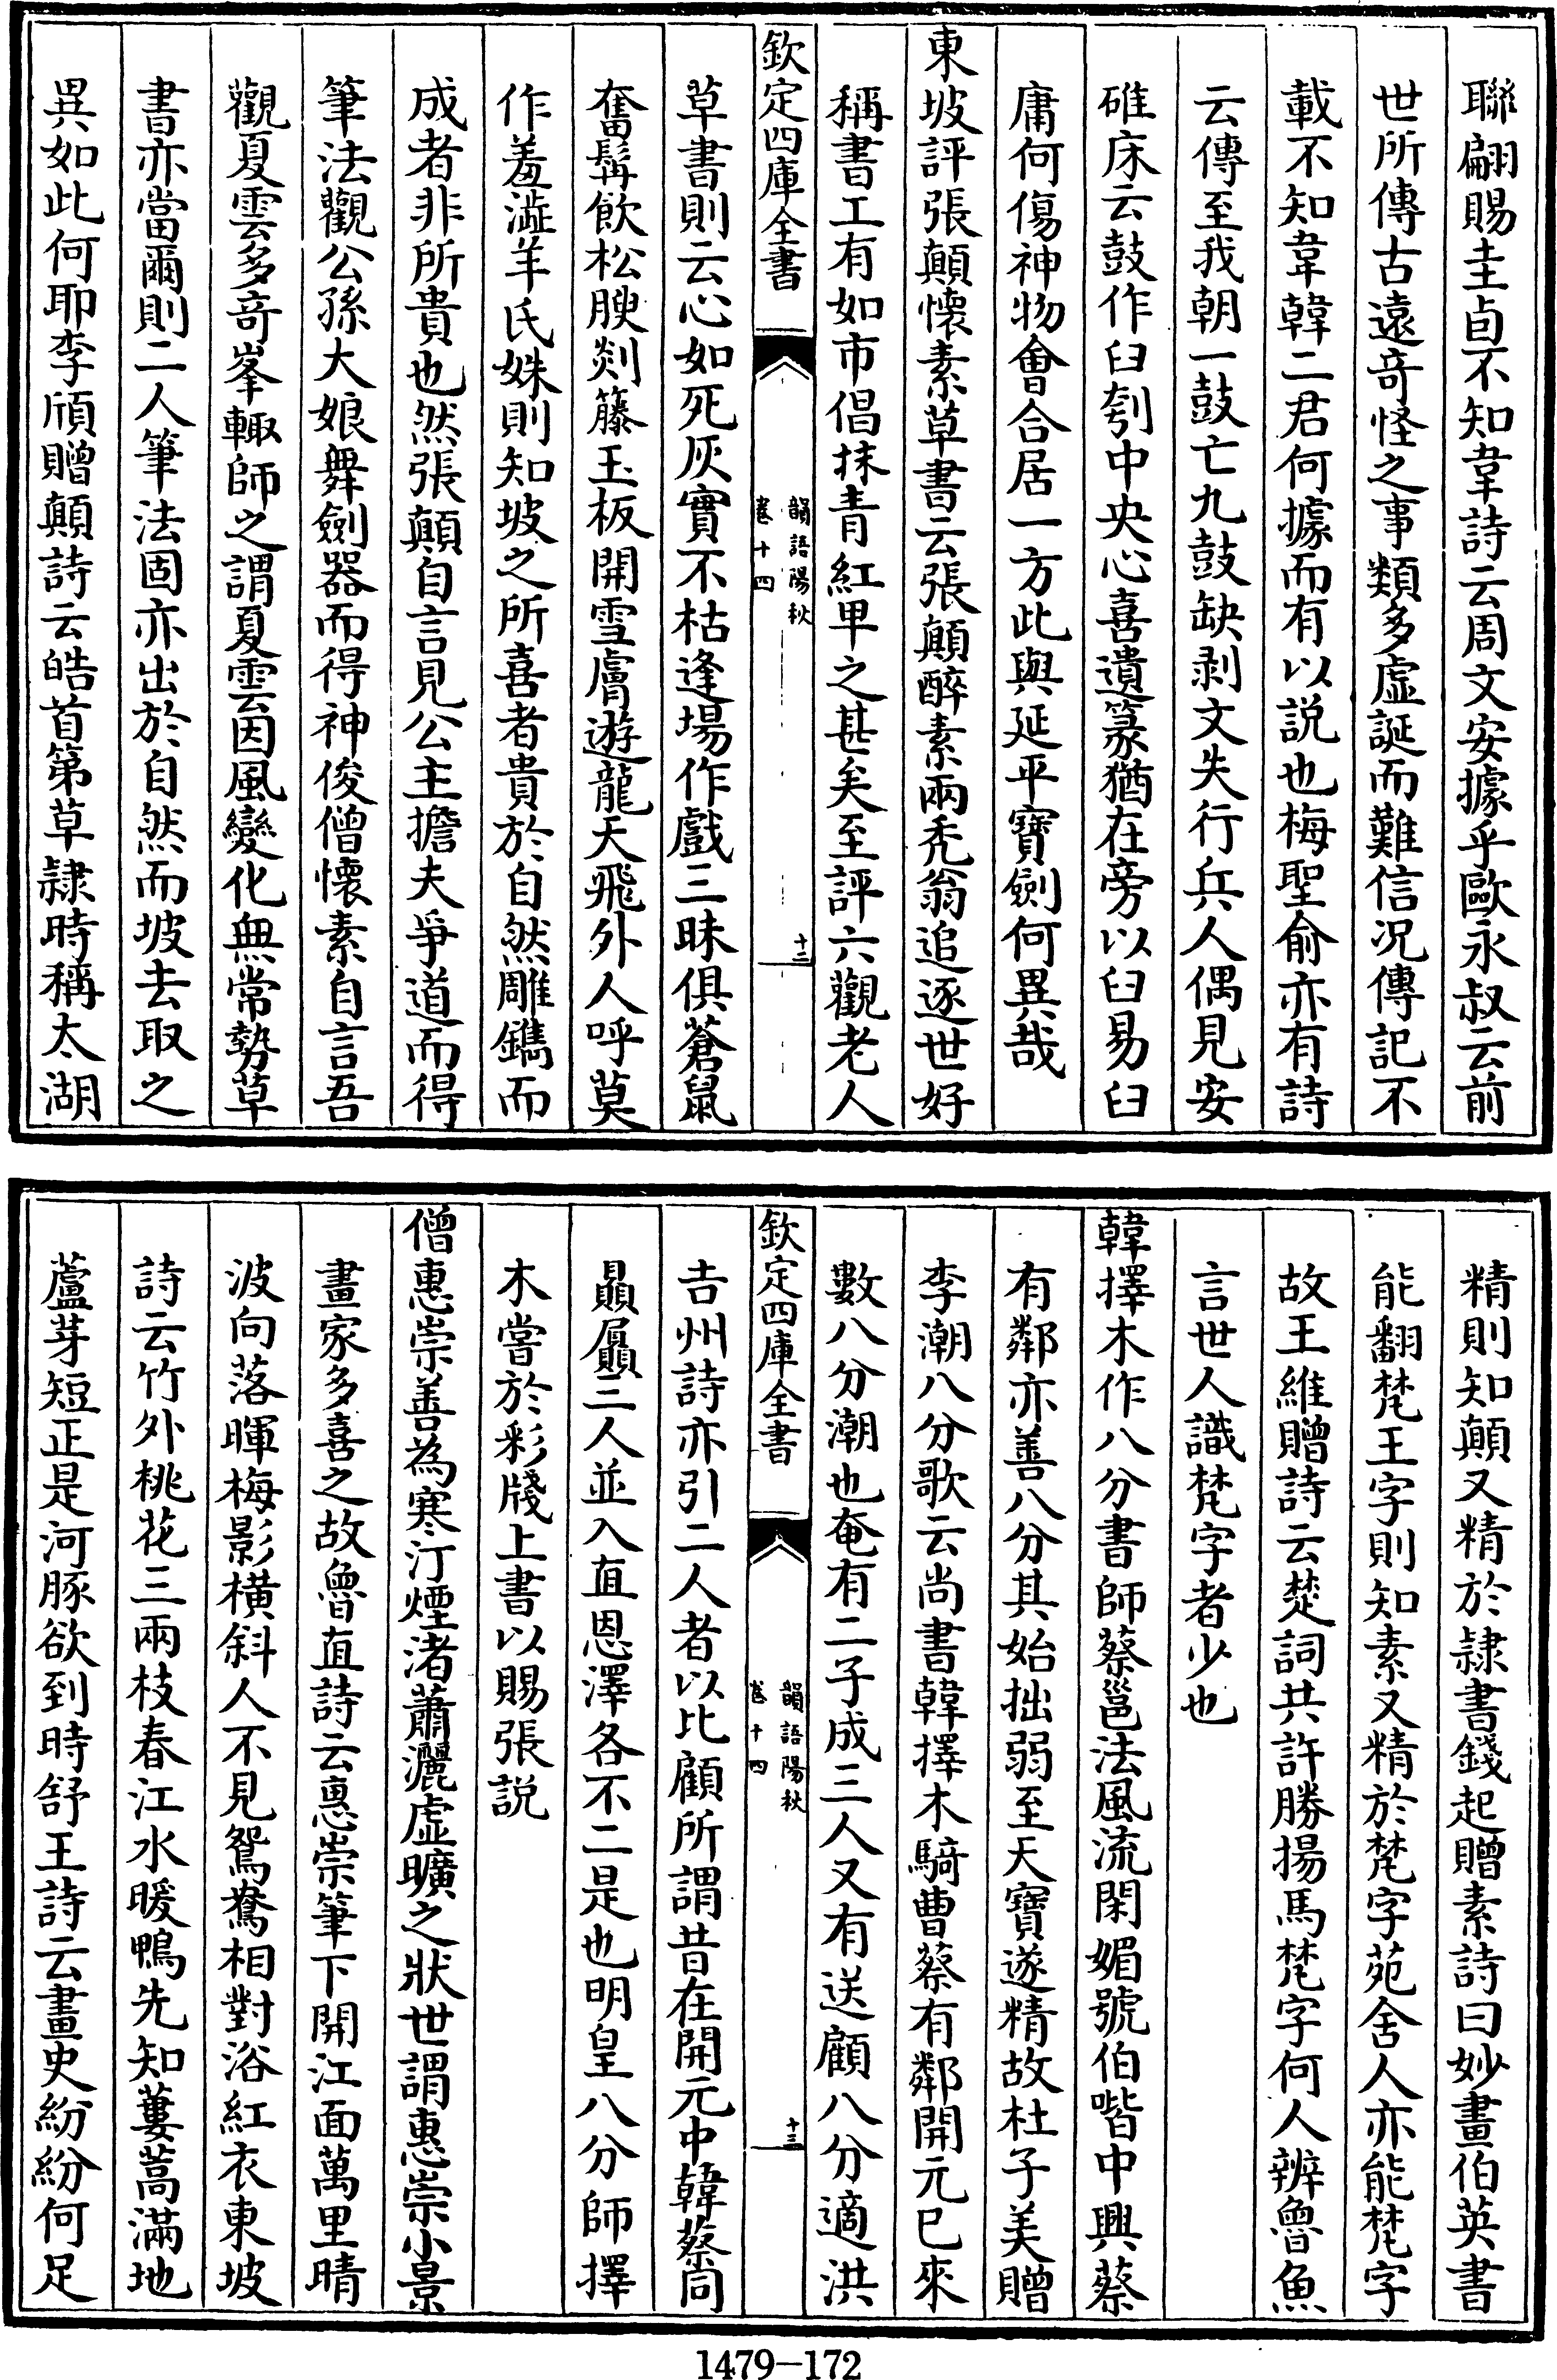 聯翩賜圭卣不知韋詩云周文安據乎歐永叔云前
世所傳古遠竒怪之事類多虛誕而難信况傳記不
載不知韋韓二君何據而有以説也梅聖俞亦有詩
云傳至我朝一鼓亡九鼓缺剥文失行兵人偶見安
碓床云鼓作臼刳中央心喜遺篆猶在旁以臼易臼
庸何傷神物會合居一方此與延平寶劍何異哉
東坡評張顛懷素草書云張顛醉素兩秃翁追逐世好
稱書工有如市倡抹青紅卑之甚矣至評六觀老人
欽定四庫全書
韻語陽秋
卷十四
十二
草書則云心如死灰實不枯逢場作戲三昧俱蒼鼠
奮髯飲松腴剡籐玉板開雪膚遊龍天飛外人呼莫
作羞澁羊氏姝則知坡之所喜者貴於自然雕鐫而
成者非所貴也然張顛自言見公主擔夫爭道而得
筆法觀公孫大娘舞劍器而得神俊僧懷素自言吾
觀夏雲多竒峯輙師之謂夏雲因風變化無常勢草
書亦當爾則二人筆法固亦出於自然而坡去取之
異如此何耶李頎贈顛詩云皓首第草隸時稱太湖
精則知顛又精於隸書錢起贈素詩曰妙畫伯英書
能翻梵王字則知素又精於梵字苑舍人亦能梵字
故王維贈詩云楚詞共許勝揚馬梵字何人辨魯魚
言世人識梵字者少也
韓擇木作八分書師蔡邕法風流閑媚號伯喈中興蔡
有鄰亦善八分其始拙弱至天寶遂精故杜子美贈
李潮八分歌云尚書韓擇木騎曹蔡有鄰開元已來
數八分潮也奄有二子成三人又有送顧八分適洪
欽定四庫全書
韻語陽秋
卷十四
十三
吉州詩亦引二人者以比顧所謂昔在開元中韓蔡同
贔屭三人並入直恩澤各不二是也明皇八分師擇
木嘗於彩牋上書以賜張説
僧惠崇善為寒汀煙渚蕭灑虛曠之狀世謂惠崇小景
畫家多喜之故魯直詩云惠崇筆下開江面萬里晴
波向落暉梅影横斜人不見鴛鴦相對浴紅衣東坡
詩云竹外桃花三兩枝春江水暖鴨先知蔞蒿滿地
蘆芽短正是河豚欲到時舒王詩云畫史紛紛何足
1479-172